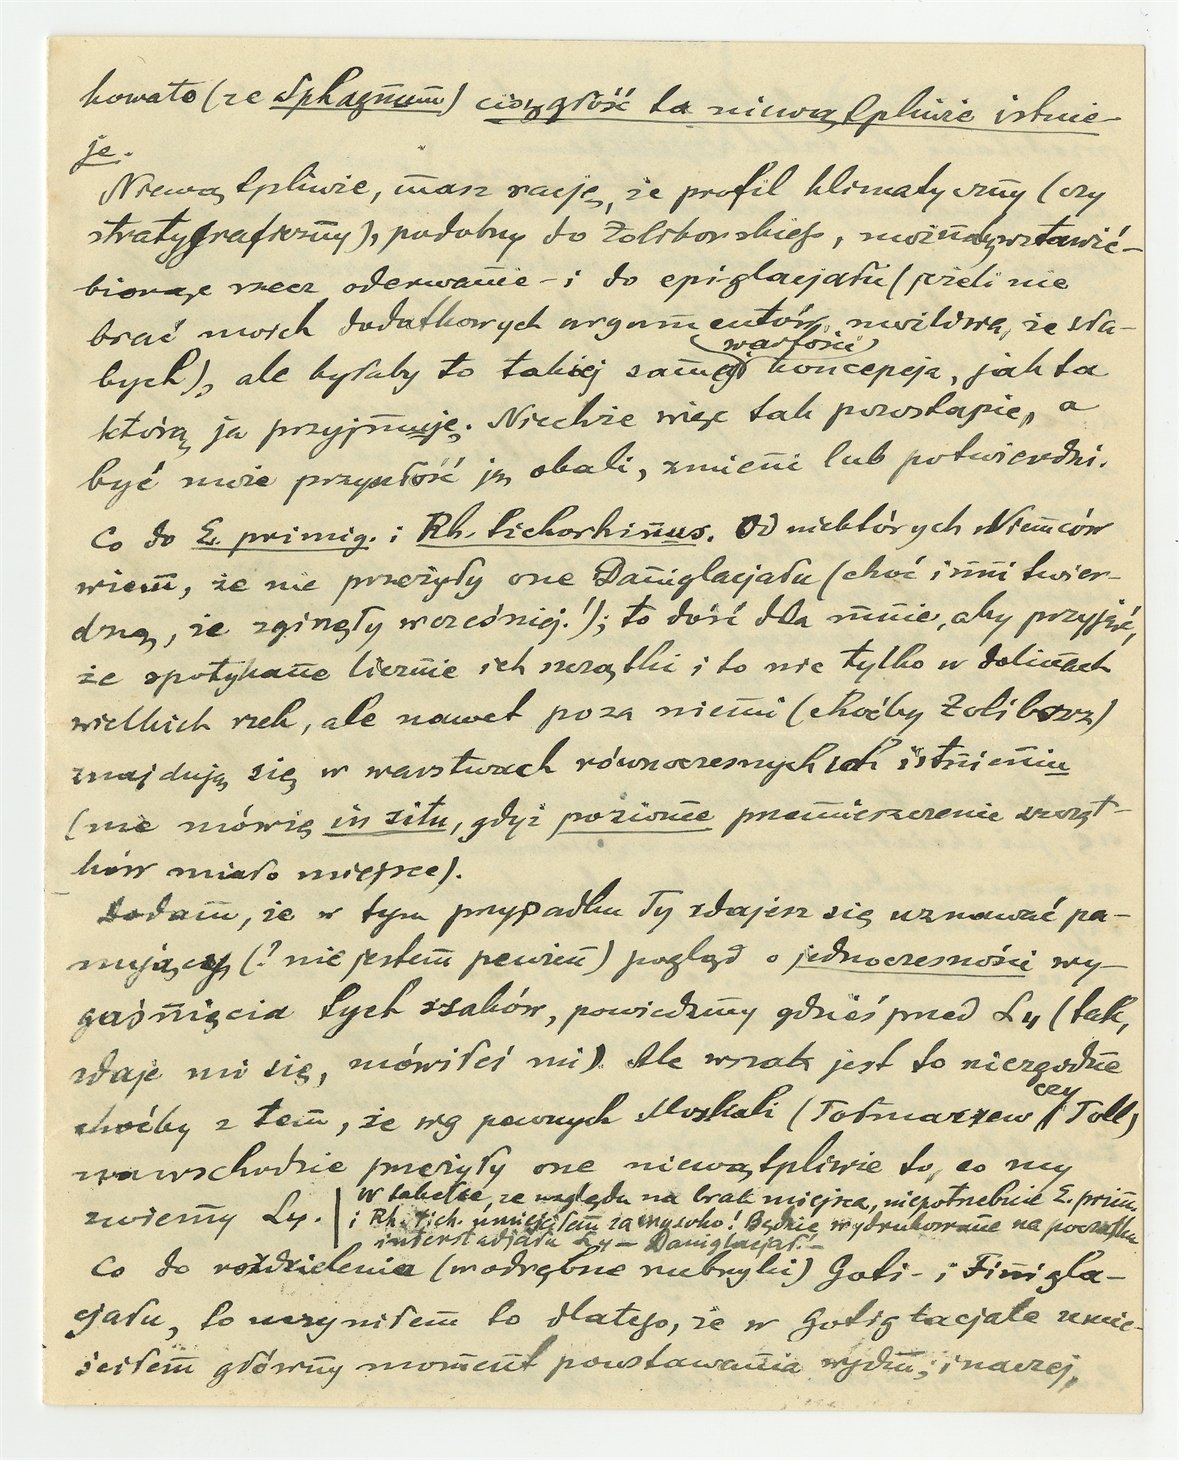 kowato (ze Sphagnum) ciągłość ta niewątpliwie istnie-
je.
Niewątpliwie, masz rację, że profil klimatyczny (czy
stratygraficzny), podobny do Żoliborskiego, możnaby wstawić –
biorąc rzecz oderwanie – i do epiglacjału (jeżeli nie
brać moich dodatkowych argumentów, możliwe, że sła-
bych), ale byłaby to takiej samej wartości koncepcja, jak ta
którą ja przyjmuję. Niechże więc tak pozostanie, a
być może przyszłość ją obali, zmieni lub potwierdzi.
Co do E. primig. i Rh. tichorhinus. Od niektórych Niemców
wiem, że nie przeżyły one Daniglacjału (choć inni twier-
dzą, że zginęły wcześniej!); to dość dla mnie, aby przyjąć,
że spotykane licznie ich szczątki i to nie tylko w dolinach
wielkich rzek, ale nawet poza niemi (choćby Żoliborz)
znajdują się w warstwach równoczesnych ich istnieniu
(nie mówię in situ, gdyż poziome przemieszczenie szcząt-
ków miało miejsce).
Dodam, że w tym przypadku Ty zdajesz się uznawać pa-
nujący (? nie jestem pewien) pogląd o jednoczesności wy-
gaśnięcia tych ssaków, powiedzmy gdzieś przed L4 (tak,
zdaje mi się, mówiłeś mi). Ale wszak jest to niezgodne
choćby z tem, że wg pewnych Moskali (Tołmaczew czy Toll)
na wschodzie przeżyły one niewątpliwie to, co my
zwiemy L4.
W tabelce, ze względu na brak miejsca, niepotrzebnie E. prim.
i Rh. tich. umieściłem za wysoko! Będzie wydrukowane na początku
interstadjału L4 – Daniglacjał! –
Co do rozdzielenia (w odrębne rubryki) Goti- i Finigla-
cjału, to uczyniłem to dlatego, że w Gotiglacjale umie-
ściłem główny moment powstawania wydm; inaczej,